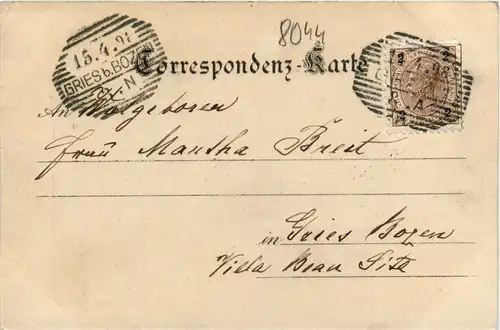 8044
15.4.98
GRIES b. BOZEN
N
Correspondenz-Karte
2 2
2 2
4.98
A
An Wolgeboren
Frau Martha Breit
in Gries Bozen
Villa Beau Site